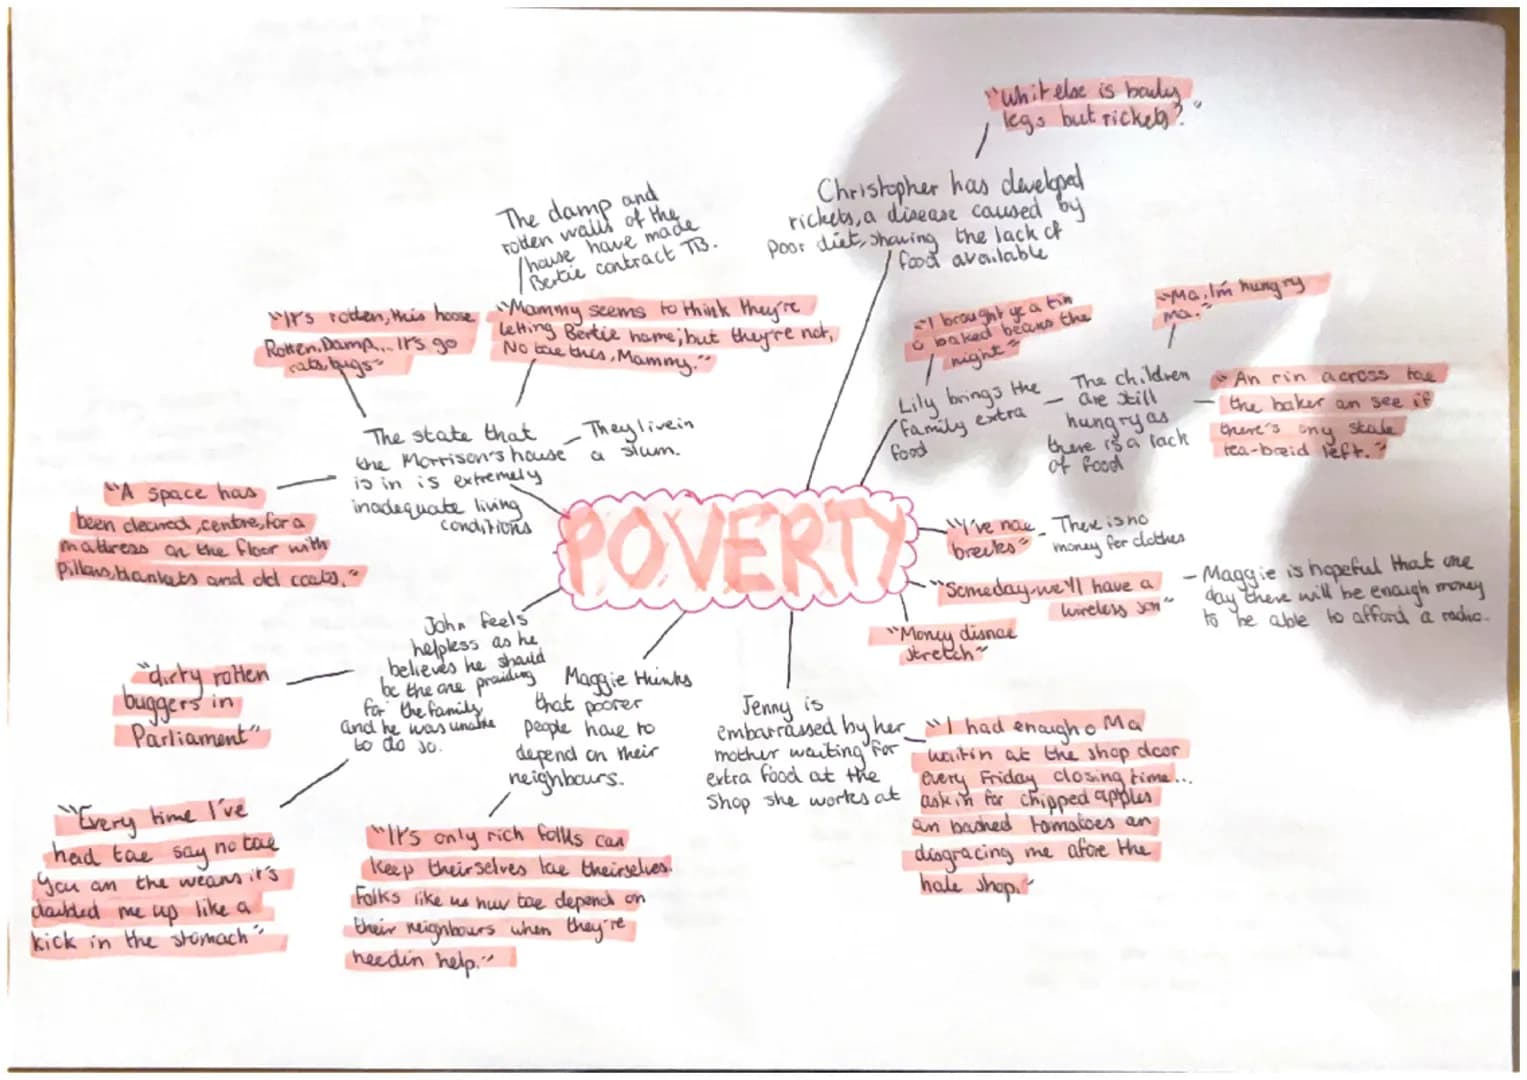 "Whit else is bowly
legs but rickets?"
Christopher has developed
rickets, a disease caused by
poor diet, showing the lack of
food available
The damp and
rotten walls of the
house have made
Bertie contract TB.
"It's rotten, this hoose
Rotten. Damp... It's go
rats, bugs"
"Mammy seems to think they're
letting Bertie hame; but they're not,
No tae this, Mammy."
"I brought ye a tin
o baked beans the
night"
"Ma, I'm hungry
ma."
Lily brings the
family extra
food
The children
are still
hungry as
there is a lack
of food
"An rin across tae
the baker an see if
there's any stale
tea-breid left."
The state that
the Morrison's house
is in is extremely
inadequate living
conditions
They live in
a slum.
"A space has
been cleared, centre, for a
mattress on the floor with
pillows, blankets and old coats."
POVERTY
"I've nae
breeks"
There is no
money for clothes
"Someday we'll have a
wireless son"
Maggie is hopeful that one
day there will be enough money
to be able to afford a radio.
"Money disnae
stretch"
John feels
helpless as he
believes he should
be the one providing
for the family
and he was unable
to do so.
"dirty rotten
buggers in
Parliament"
"Every time I've
head tae say no tae
you an the weans it's
doubled me up like a
kick in the stomach"
Maggie thinks
that poorer
people have to
depend on their
neighbours.
"It's only rich folks can
keep theirselves tae theirselves.
Folks like us huv tae depend on
their neighbours when they're
needin help."
Jenny is
embarrassed by her
mother waiting for
extra food at the
shop she works at
"I had enough o Ma
waitin at the shop door
every Friday closing time...
askin for chipped apples
an bashed tomatoes an
disgracing me afore the
hale shop."